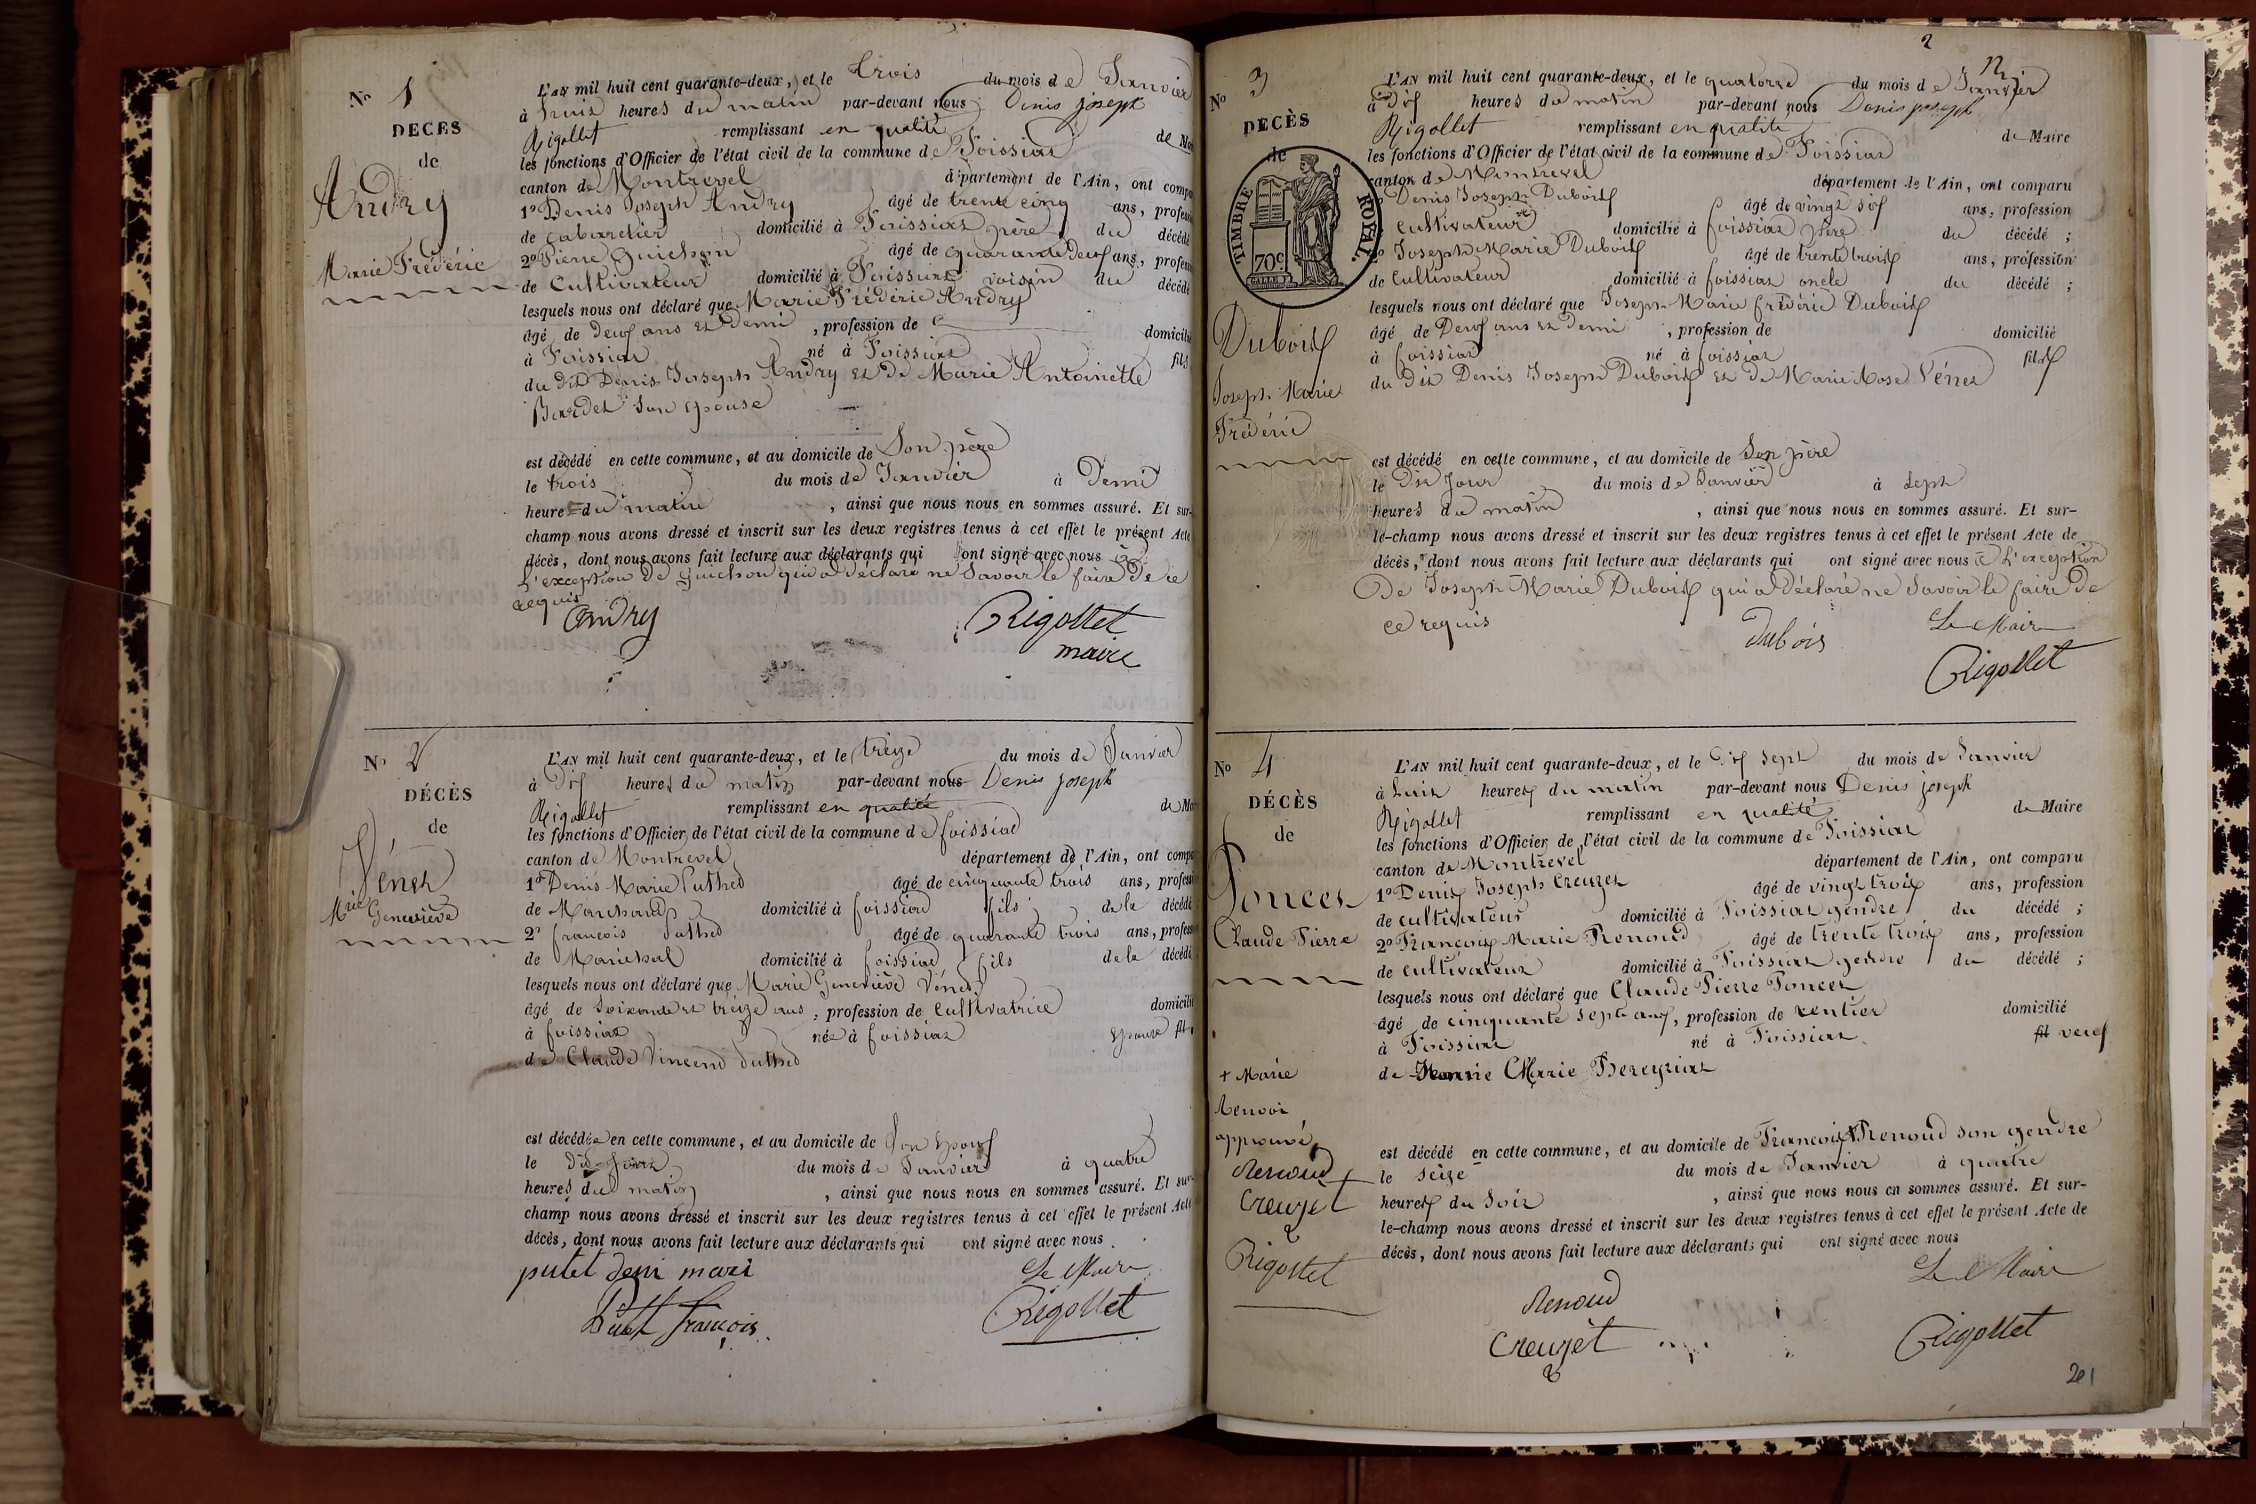 No 1
DECES
de
Andry
Marie Frédéric
L'AN mil huit cent quarante-deux, et le trois du mois de Janvier
à huit heures du matin par-devant nous Denis joseph
Rigollet remplissant en qualité de Mai
les fonctions d'Officier de l'état civil de la commune de Foissiat
canton de Montrevel département de l'Ain, ont compa
1o Denis Joseph Andry âgé de trente cinq ans, profess
de cabaretier domicilié à Foissiat père du décédé
2o Pierre Guichon âgé de quarante deux ans, profess
de Cultivateur domicilié à Foissiat voisin du décédé
lesquels nous ont déclaré que Marie Frédéric Andry
âgé de deux ans et demi, profession de domicilié
à Foissiat né à Foissiat fils
du dit Denis Joseph Andry et de Marie Antoinette
Bardet son épouse
est décédé en cette commune, et au domicile de Son père
le trois du mois de Janvier à Demi
heure du matin, ainsi que nous nous en sommes assuré. Et sur-
champ nous avons dressé et inscrit sur les deux registres tenus à cet effet le présent Acte
décès, dont nous avons fait lecture aux déclarants qui ont signé avec nous à
L'exception de guichon qui a déclaré ne Savoir le faire De ce
requis
Andry
Rigollet
maire
No 2
DÉCÈS
de
Vénet
Mrie Geneviève
L'AN mil huit cent quarante-deux, et le treize du mois de Janvier
à dix heures du matin par-devant nous Denis joseph
Rigollet remplissant en qualité de Mai
les fonctions d'Officier de l'état civil de la commune de foissiat
canton de Montrevel département de l'Ain, ont compa
1o Denis Marie Puthod âgé de cinquante trois ans, profess
de Marchand domicilié à foissiat fils de la décédé
2o françois Puthod âgé de quarante trois ans, profess
de Maréchal domicilié à foissiat fils de la décédé
lesquels nous ont déclaré que Marie Geneviève Vénet
âgé de Soixante et treize ans, profession de Cultivatrice domicilié
à foissiat née à foissiat Epouse
de Claude Vincend Puthod
est décédée en cette commune, et au domicile de Son Epoux
le dit Jour du mois de Janvier à quatre
heures du matin, ainsi que nous nous en sommes assuré. Et sur-
champ nous avons dressé et inscrit sur les deux registres tenus à cet effet le présent Acte
décès, dont nous avons fait lecture aux déclarants qui ont signé avec nous
putet deni mari
Le Maire
Putet françois
Rigollet
2
No 3
DECÈS
de
TIMBRE ROYAL
70c
Dubois
Joseph Marie
Frédéric
L'AN mil huit cent quarante-deux, et le quatorze du mois de Janvier
à dix heures du matin par-devant nous Denis joseph
Rigollet remplissant en qualité de Maire
les fonctions d'Officier de l'état civil de la commune de Foissiat
canton de Montrevel département de l'Ain, ont comparu
Denis Joseph Dubois âgé de vingt six ans, profession
Cultivateur domicilié à foissiat père du décédé ;
Joseph Marie Dubois âgé de trente trois ans, profession
de Cultivateur domicilié à foissiat oncle du décédé ;
lesquels nous ont déclaré que Joseph Marie frédéric Dubois
âgé de Deux ans et demi, profession de domicilié
à foissiat né à foissiat fils
du dit Denis Joseph Dubois et de Marie Rose Vénet
est décédé en cette commune, et au domicile de Son père
le Dit Jour du mois de Janvier à Sept
heures du matin, ainsi que nous nous en sommes assuré. Et sur-
le-champ nous avons dressé et inscrit sur les deux registres tenus à cet effet le présent Acte de
décès, dont nous avons fait lecture aux déclarants qui ont signé avec nous à L'exception
De Joseph Marie Dubois qui a déclaré ne Savoir le faire De
ce requis
Dubois
Le Maire
Rigollet
No 4
DÉCÈS
de
Poncet
Claude Pierre
+ Marie
Renvoi
approuvé
Renoud
Creuzet
Rigollet
L'AN mil huit cent quarante-deux, et le Dix Sept du mois de Janvier
à huit heures du matin par-devant nous Denis joseph
Rigollet remplissant en qualité de Maire
les fonctions d'Officier de l'état civil de la commune de Foissiat
canton de Montrevel département de l'Ain, ont comparu
1o Denis Joseph Creuzet âgé de vingt trois ans, profession
de cultivateur domicilié à Foissiat gendre du décédé ;
2o François Marie Renoud âgé de trente trois ans, profession
de cultivateur domicilié à Foissiat gendre du décédé ;
lesquels nous ont déclaré que Claude Pierre Poncet
âgé de cinquante Sept ans, profession de rentier domicilié
à Foissiat né à Foissiat fil veuf
de Marie Bereyziat
est décédé en cette commune, et au domicile de François + Renoud son gendre
le seize du mois de Janvier à quatre
heures du Soir, ainsi que nous nous en sommes assuré. Et sur-
le-champ nous avons dressé et inscrit sur les deux registres tenus à cet effet le présent Acte de
décès, dont nous avons fait lecture aux déclarants qui ont signé avec nous
Renoud
Le Maire
Creuzet
Rigollet
201